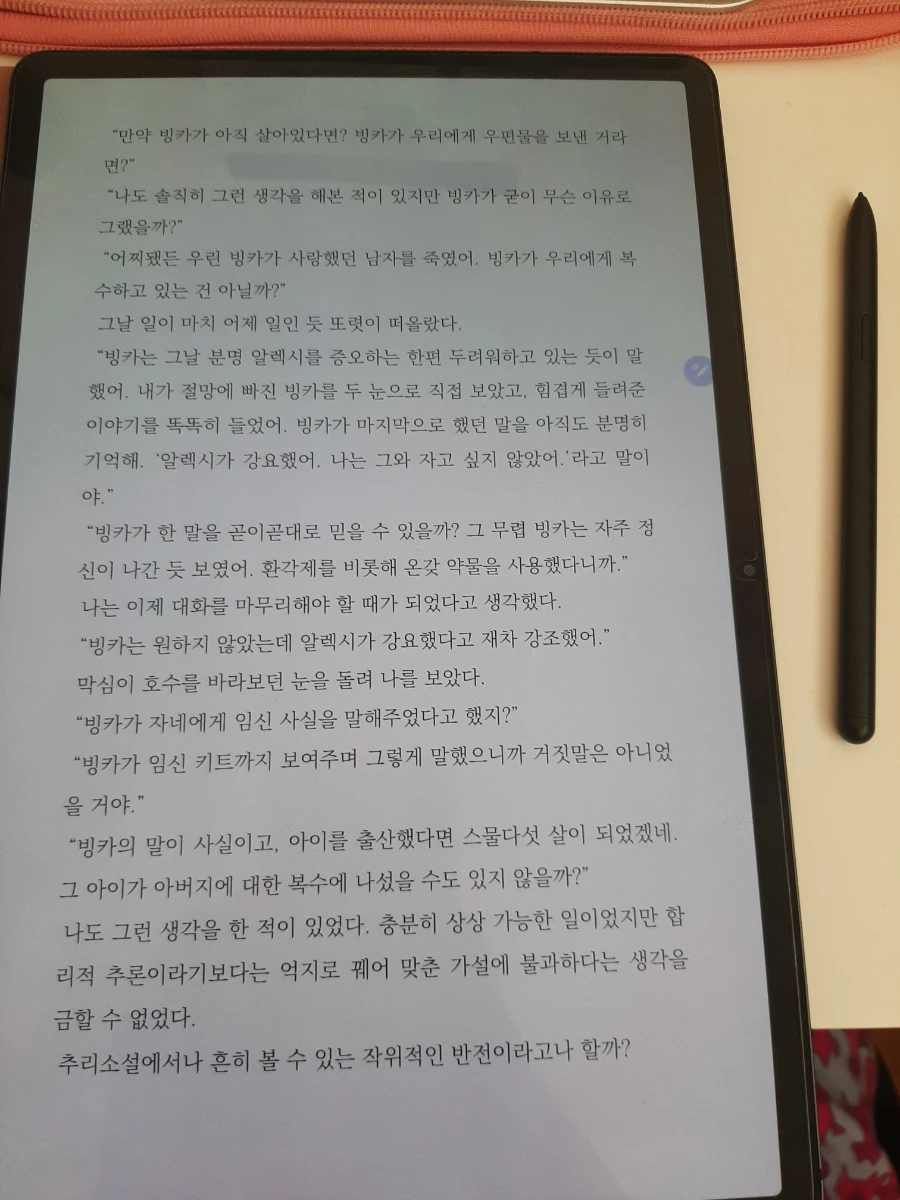 “만약 빙카가 아직 살아있다면? 빙카가 우리에게 우편물을 보낸 거라
면?”
“나도 솔직히 그런 생각을 해본 적이 있지만 빙카가 굳이 무슨 이유로
그랬을까?”
“어찌됐든 우린 빙카가 사랑했던 남자를 죽였어. 빙카가 우리에게 복
수하고 있는 건 아닐까?”
그날 일이 마치 어제 일인 듯 또렷이 떠올랐다.
“빙카는 그날 분명 알렉시를 증오하는 한편 두려워하고 있는 듯이 말
했어. 내가 절망에 빠진 빙카를 두 눈으로 직접 보았고, 힘겹게 들려준
이야기를 똑똑히 들었어. 빙카가 마지막으로 했던 말을 아직도 분명히
기억해. ‘알렉시가 강요했어. 나는 그와 자고 싶지 않았어.’라고 말이
야.”
“빙카가 한 말을 곧이곧대로 믿을 수 있을까? 그 무렵 빙카는 자주 정
신이 나간 듯 보였어. 환각제를 비롯해 온갖 약물을 사용했다니까.”
나는 이제 대화를 마무리해야 할 때가 되었다고 생각했다.
“빙카는 원하지 않았는데 알렉시가 강요했다고 재차 강조했어.”
막심이 호수를 바라보던 눈을 돌려 나를 보았다.
“빙카가 자네에게 임신 사실을 말해주었다고 했지?”
“빙카가 임신 키트까지 보여주며 그렇게 말했으니까 거짓말은 아니었
을 거야.”
“빙카의 말이 사실이고, 아이를 출산했다면 스물다섯 살이 되었겠네.
그 아이가 아버지에 대한 복수에 나섰을 수도 있지 않을까?”
나도 그런 생각을 한 적이 있었다. 충분히 상상 가능한 일이었지만 합
리적 추론이라기보다는 억지로 꿰어 맞춘 가설에 불과하다는 생각을
금할 수 없었다.
추리소설에서나 흔히 볼 수 있는 작위적인 반전이라고나 할까?